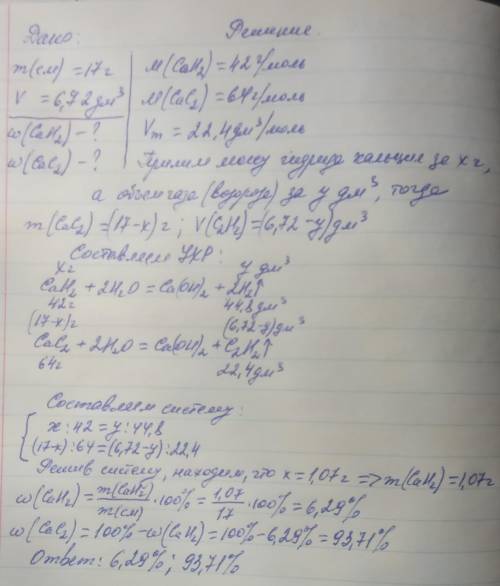 Дано: Решение.
m(см) = 17 г M(CaH₂) = 42 г/моль
V = 6,72 дм³ M(CaC₂) = 64 г/моль
ω(CaH₂) - ? Vm = 22,4 дм³/моль
ω(CaC₂) - ? Примем массу гидрида кальция за x г,
а объем газа (водорода) за y дм³, тогда
m(CaC₂) = (17-x) г ; V(C₂H₂) = (6,72 - y) дм³
Составляем УХР:
x г y дм³
CaH₂ + 2H₂O = Ca(OH)₂ + 2H₂↑
42 г 44,8 дм³
(17-x) г (6,72-y) дм³
CaC₂ + 2H₂O = Ca(OH)₂ + C₂H₂↑
64 г 22,4 дм³
Составляем систему:
x : 42 = y : 44,8
(17-x) : 64 = (6,72-y) : 22,4
Решив систему, находим, что x = 1,07 г => m(CaH₂) = 1,07 г
ω(CaH₂) = m(CaH₂)/m(см) · 100% = 1,07/17 · 100% = 6,29%
ω(CaC₂) = 100% - ω(CaH₂) = 100% - 6,29% = 93,71%
Ответ: 6,29% ; 93,71%